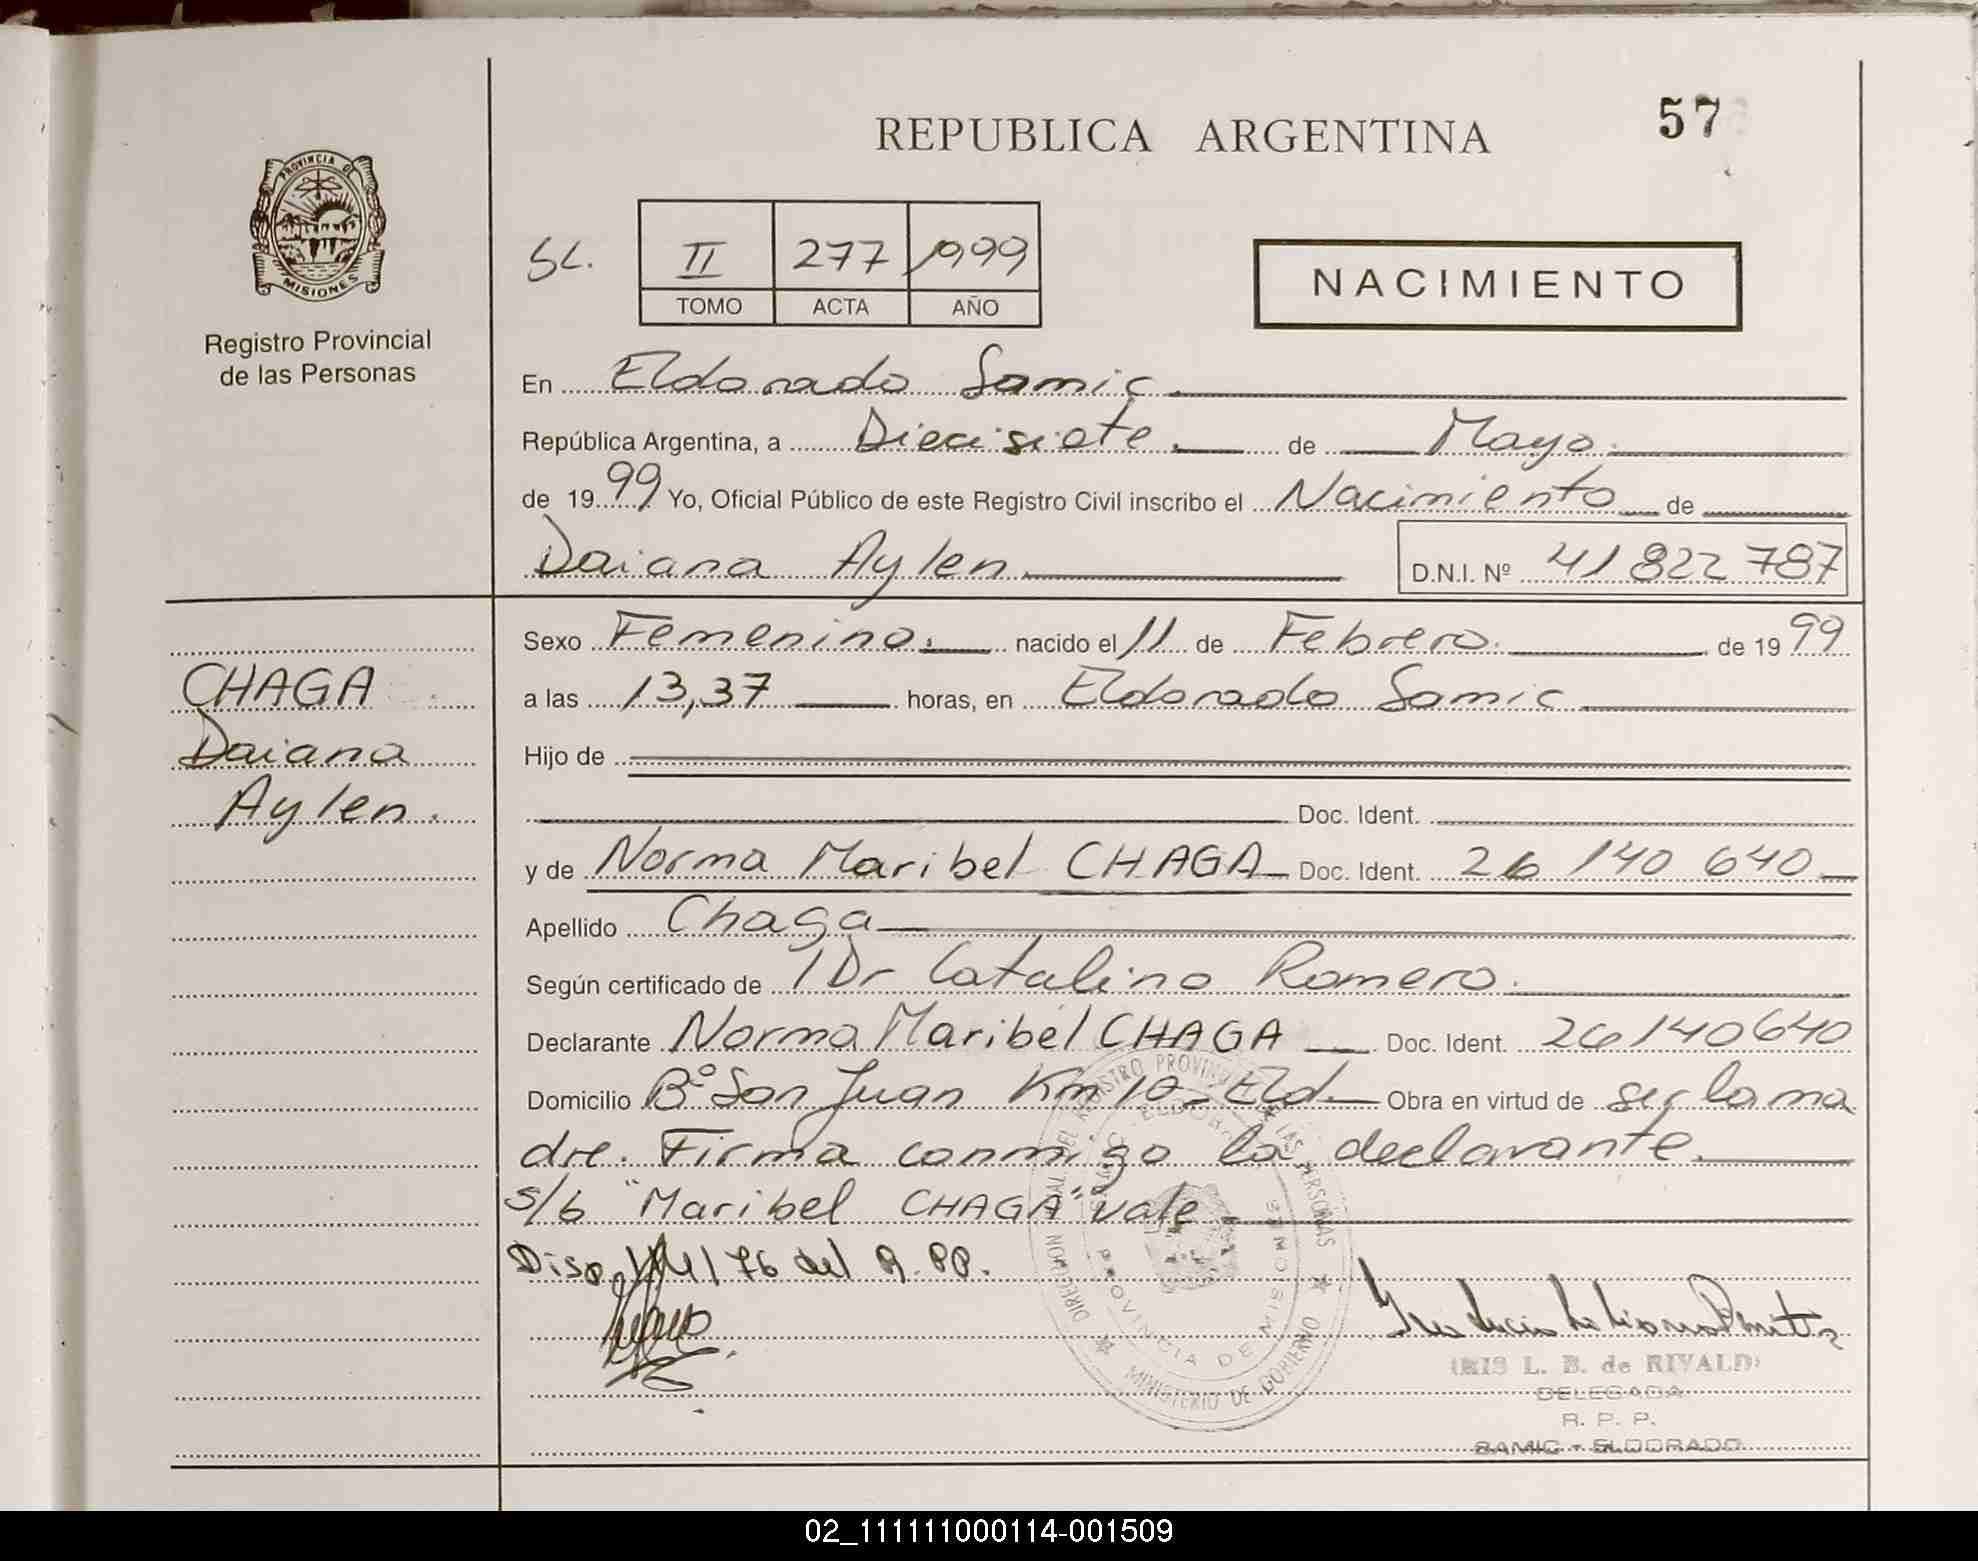 REPUBLICA ARGENTINA
57
PROVINCIA DE
MISIONES
Registro Provincial
de las Personas
SL.
II 277 1999
TOMO ACTA AÑO
NACIMIENTO
En Eldorado Samic.
República Argentina, a Diecisiete. de Mayo.
de 1999 Yo, Oficial Público de este Registro Civil inscribo el Nacimiento de
Daiana Aylen D.N.I. Nº 41 822 787
CHAGA
Daiana
Aylen.
Sexo Femenino. nacido el 11 de Febrero. de 1999
a las 13,37 horas, en Eldorado Samic
Hijo de
Doc. Ident.
y de Norma Maribel CHAGA Doc. Ident. 26 140 640
Apellido Chaga
Según certificado de 1 Dr Catalino Romero.
Declarante Norma Maribel CHAGA Doc. Ident. 26140640
Domicilio Bº San Juan Km 10 - Eld. Obra en virtud de ser la ma
dre. Firma conmigo la declarante.
s/b "Maribel CHAGA" vale
Disp 141/76 del R.PP.
DIRECCION DEL REGISTRO PROVINCIAL DE LAS PERSONAS
MINISTERIO DE GOBIERNO
PROVINCIA DE MISIONES
IRIS L. B. de RIVALDI
DELEGADA
R. P. P.
SAMIC - ELDORADO
02_111111000114-001509